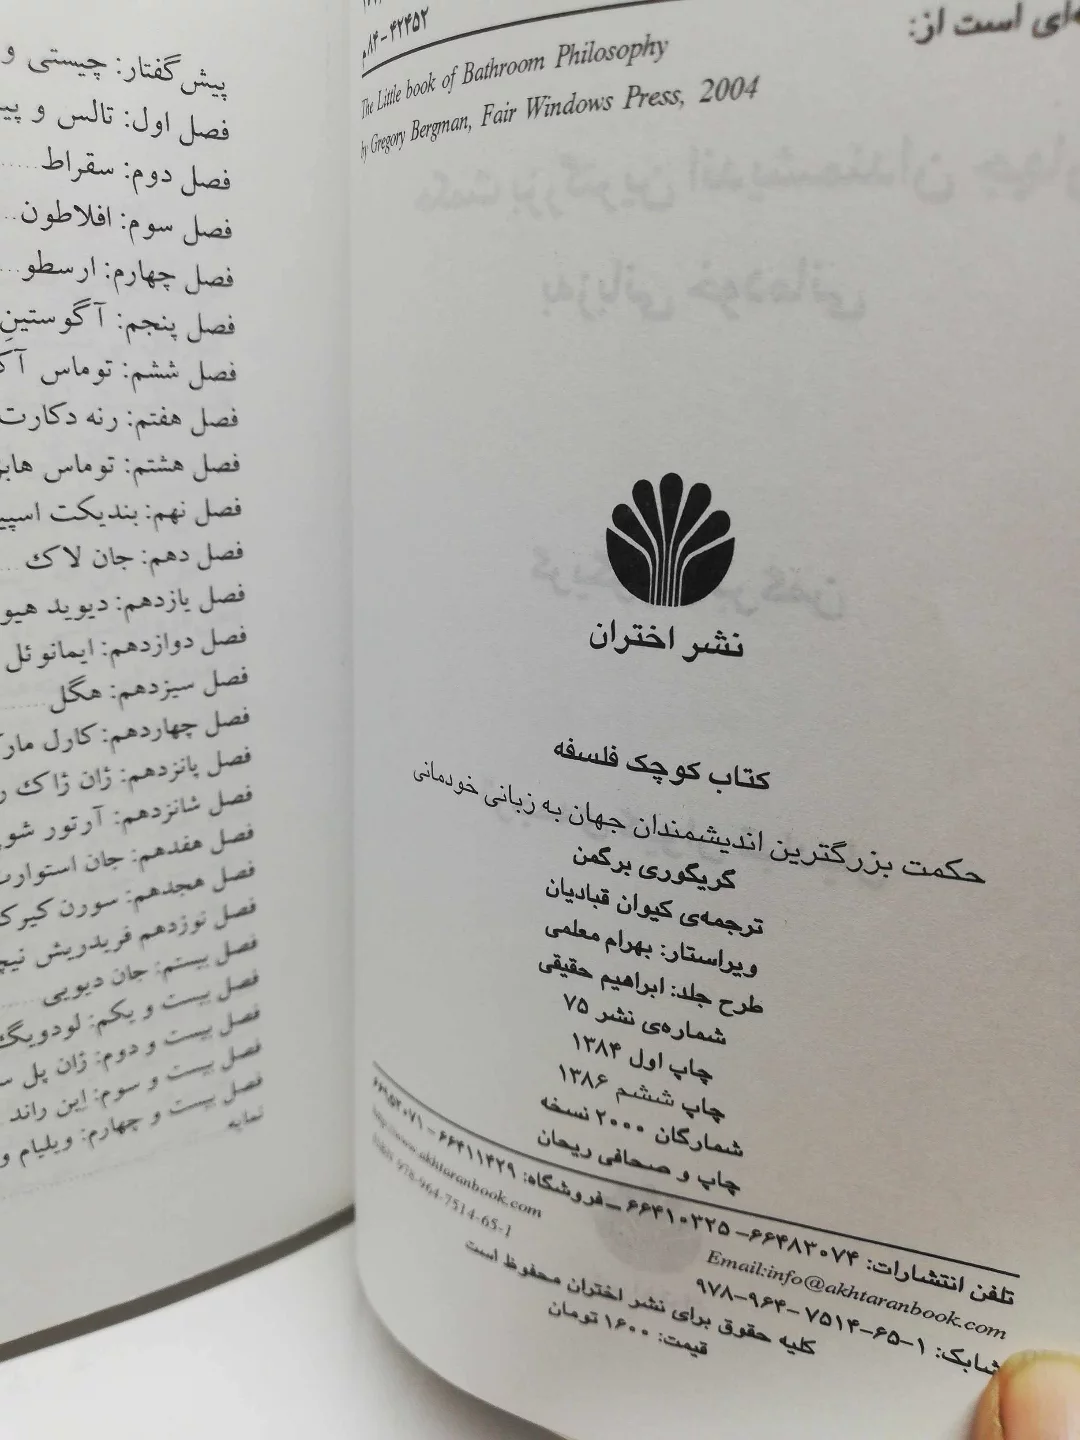 ه‌ای است از:
۸۴-۴۲۴۵۲م
The Little book of Bathroom Philosophy
by Gregory Bergman, Fair Windows Press, 2004
نشر اختران
کتاب کوچک فلسفه
حکمت بزرگترین اندیشمندان جهان به زبانی خودمانی
گریگوری برگمن
ترجمه‌ی کیوان قبادیان
ویراستار: بهرام معلمی
طرح جلد: ابراهیم حقیقی
شماره‌ی نشر ۷۵
چاپ اول ۱۳۸۴
چاپ ششم ۱۳۸۶
شمارگان ۲۰۰۰ نسخه
چاپ و صحافی ریحان
تلفن انتشارات: ۶۶۴۸۳۰۷۴-۶۶۴۱۰۳۲۵ – فروشگاه: ۶۶۴۱۱۴۲۹ - ۶۶۹۵۳۰۷۱
http://www.akhtaranbook.com
Email:info@akhtaranbook.com
ISBN 978-964-7514-65-1
شابک: ۱-۶۵-۷۵۱۴-۹۶۴-۹۷۸
کلیه حقوق برای نشر اختران محفوظ است
قیمت: ۱۶۰۰ تومان
پیش‌گفتار: چیستی و
فصل اول: تالس و
فصل دوم: سقراط
فصل سوم: افلاطون
فصل چهارم: ارسطو
فصل پنجم: آگوستینِ
فصل ششم: توماس
فصل هفتم: رنه دکارت
فصل هشتم: توماس
فصل نهم: بندیکت
فصل دهم: جان لاک
فصل یازدهم: دیوید
فصل دوازدهم: ایمانوئل
فصل سیزدهم: هگل
فصل چهاردهم: کارل
فصل پانزدهم: ژان ژاک
فصل شانزدهم: آرتور
فصل هفدهم: جان
فصل هجدهم: سورن
فصل نوزدهم فریدریش
فصل بیستم: جان دیویی
فصل بیست و یکم:
فصل بیست و دوم: ژان پل
فصل بیست و سوم: این راند
فصل بیست و چهارم: ویلیام
نمایه